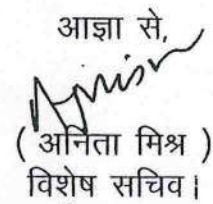 आज्ञा से,
( अनिता मिश्र )
विशेष सचिव।